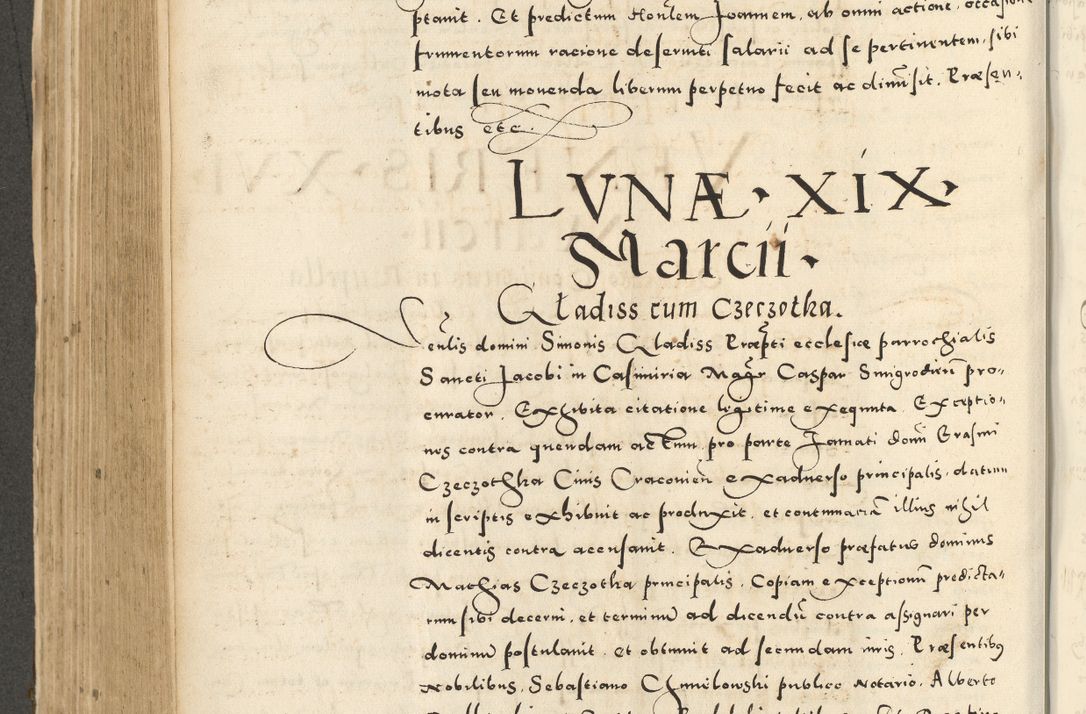 ptauit. Et predictum Honlem Joannem, ab omni actione, occasione
frumentorum racione deseruiti salarii ad se pertinentem, sibi
mota seu mouenda liberum perpetuo fecit ac dimisit. Præsen-
tibus etc.
LVNÆ. XIX.
Marcii.
Gładiss cum Czeczotka.
Venlis domini Simonis Gładiss Præpti ecclesiæ parrochialis
Sancti Jacobi in Casimiria Magr Caspar Smigrodien pro-
curator. Exhibita citatione legitime exequuta. Exceptio-
nes contra quendam actum pro parte Famati domi Erasmi
Czeczothka Ciuis Cracouien exaduerso principalis, datum
in scriptis exhibuit ac produxit, et contumaciã illius nihil
dicentis contra accusauit. Exaduerso præfatus dominus
Mathias Czeczotka principalis, copiam exceptionum predicta-
rum sibi decerni, et terminũ ad dicendũ contra assignari per
dominũ postulauit, et obtinuit ad secundam iuris. Præsentibus
Nobilibus, Sebastiano Chmielowski publico Notario, Alberto